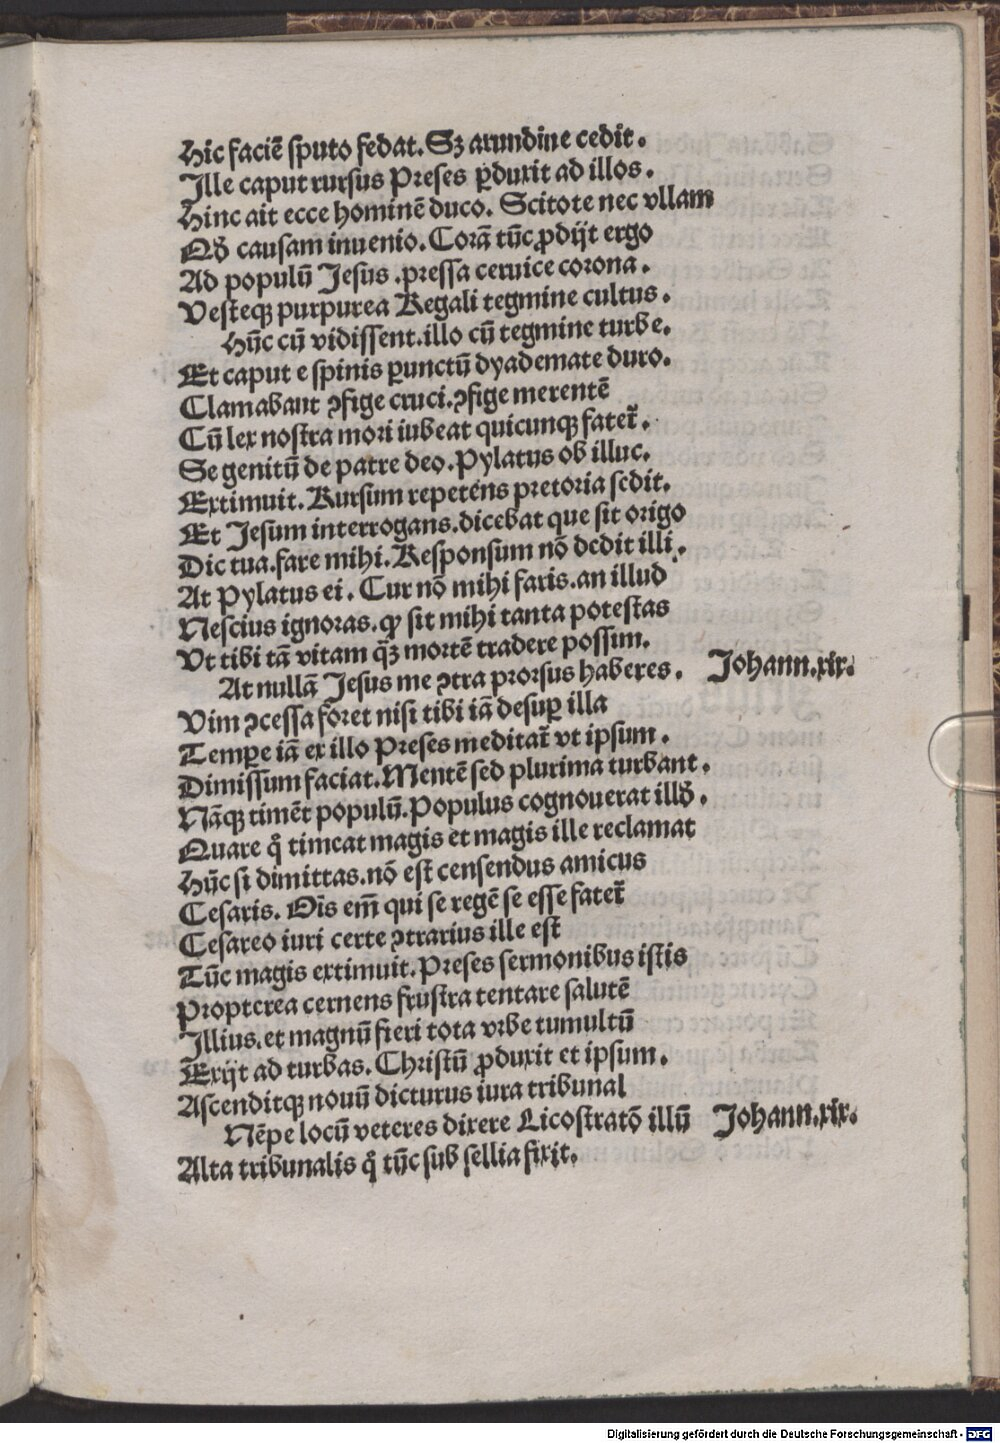 Hic faciē sputo fedat. Sꝫ arundine cedit.
Ille caput rursus Preses ꝑduxit ad illos.
Hinc ait ecce hominē duco. Scitote nec vllam
Qđ causam inuenio. Corā tūc ꝓdijt ergo
Ad populū Jesus .pressa ceruice corona.
Vesteqꝫ purpurea Regali tegmine cultus.
Hūc cū vidissent.illo cū tegmine turbe.
Et caput e spinis ꝑunctū dyademate duro.
Clamabant ꝯfige cruci.ꝯfige merentē
Cū lex nostra mori iubeat quicunqꝫ fater̄.
Se genitū de patre deo. Pylatus ob illuc.
Extimuit. Rursum repetens pretoria sedit.
Et Jesum interrogans.dicebat que sit origo
Dic tua.fare mihi. Responsum nō dedit illi.
At Pylatus ei. Cur nō mihi faris.an illud
Nescius ignoras.ꝙ sit mihi tanta potestas
Vt tibi tā vitam q̄ꝫ mortē tradere possim.
At nullā Jesus me ꝯtra prorsus haberes. Johann.xix.
Vim ꝯcessa foret nisi tibi iā desuꝑ illa
Temꝑe iā ex illo Preses meditat̄ vt ipsum.
Dimissum faciat. Mentē sed plurima turbant.
Nāqꝫ timēt populū. Populus cognouerat illđ.
Quare qͦ timeat magis et magis ille reclamat
Hūc si dimittas.nō est censendus amicus
Cesaris. Oīs em̄ qui se regē se esse fater̄
Cesareo iuri certe ꝯtrarius ille est
Tūc magis extimuit. Preses sermonibus istis
Propterea cernens frustra tentare salutē
Illius.et magnū fieri tota vrbe tumultū
Exijt ad turbas. Christū ꝓduxit et ipsum.
Ascenditqꝫ nouū dicturus iura tribunal
Nēpe locū veteres dixere Licostratō illū Johann.xix.
Alta tribunalis qͦ tūc sub sellia fixit.
Digitalisierung gefördert durch die Deutsche Forschungsgemeinschaft - DFG